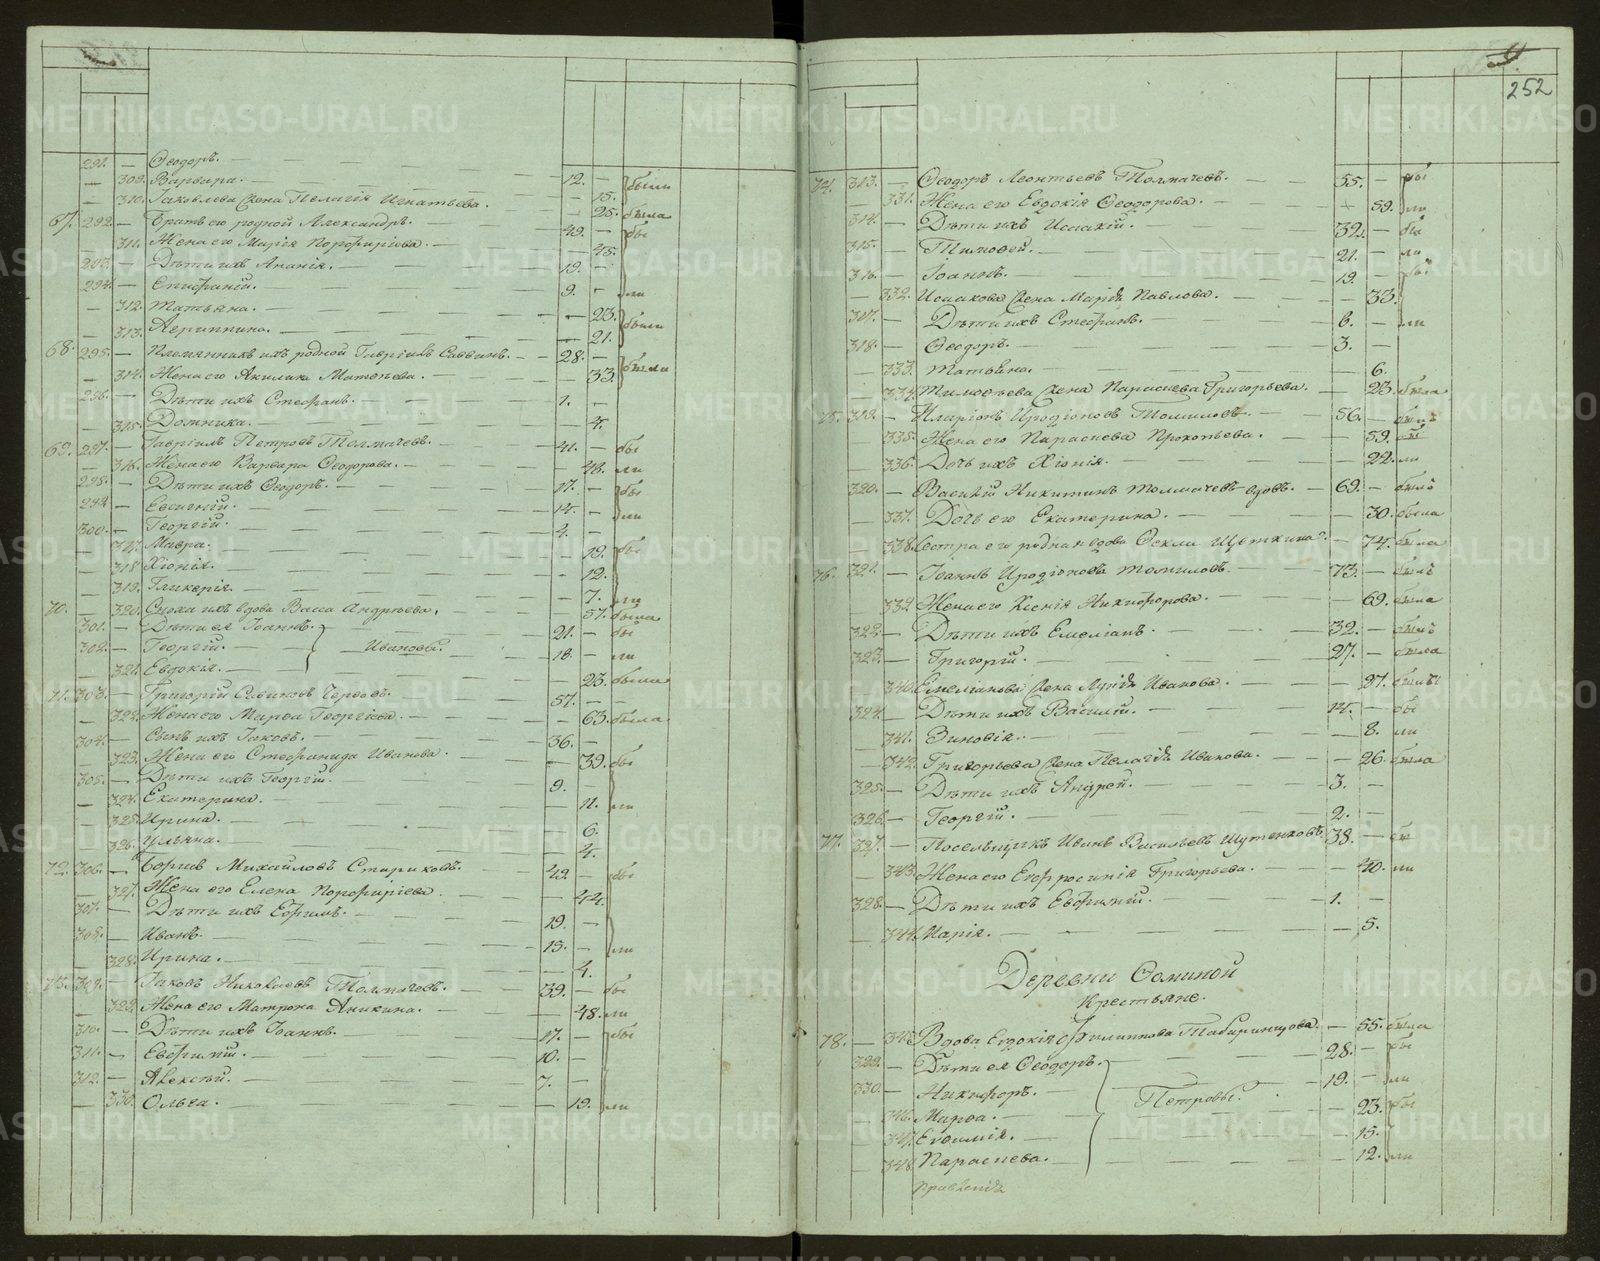 291. — Ѳеодоръ. — 12. —
— 309. Варвара. — 15. были
— 310. Іаковлева жена Пелагія Игнатьева. — 25. была
67. 292. — Братъ его родной Александръ. 49. — бы
— 311. Жена его Марія Порфиріева. — 45.
293. — Дѣти ихъ Ананія. 19. —
294. — Епифаній. 9. — ли
— 312. Татьяна. — 23. были
— 313. Агриппина. — 21.
68. 295. — Племянникъ ихъ родной Гавріилъ Саввинъ. 28. — были
— 314. Жена его Акилина Матѳеева. — 33.
296. — Дѣти ихъ Стефанъ. 1. —
— 315. Домника. — 4.
69. 297. — Гавріилъ Петровъ Толмачевъ. 41. — бы
— 316. Жена его Варвара Ѳеодорова. — 48. ли
298. — Дѣти ихъ Ѳеодоръ. 17. — бы
299. — Евсигній. 14. — ли
300. — Георгій. 4. —
— 317. Мавра. — 19. бы
— 318. Хіонія. — 12.
— 319. Гликерія. — 7. ли
70. — 320. Сноха ихъ вдова Васса Андреева. — 57. была
301. — Дѣти ея Іоаннъ. 21. — бы
302. — Георгій. Ивановы. 18. — ли
— 321. Евдокія. — 23. была
71. 303. — Григорій 57. —
— 322. Жена его Марѳа Георгіева. — 63. была
304. — Сынъ ихъ Іаковъ. 36. —
— 323. Жена его Стефанида Иванова. — 39. бы
305. — Дѣти ихъ Георгій. 9. —
— 324. Екатерина. — 11. ли
— 325. Ирина. — 6.
— 326. Ульяна. — 4.
72. 306. — Борисъ Михайловъ Стариковъ. 49. — бы
— 327. Жена его Елена Порфиріева. — 44.
307. — Дѣти ихъ Ефимъ. 19. —
308. — Иванъ. 15. — ли
— 328. Ирина. — 4.
73. 309. — Іаковъ Николаевъ Толмачевъ. 39. — бы
— 329. Жена его Матрона Аникина. — 48. ли
310. — Дѣти ихъ Іоаннъ. 17. — бы
311. — Евфимій. 10. —
312. — Алексѣй. 7. —
— 330. Ольга. — 19. ли
252
74. 313. — Ѳеодоръ Леонтьевъ Толмачевъ. 55. — бы
— 331. Жена его Евдокія Ѳеодорова. — 59. ли
314. — Дѣти ихъ Исаакій. 32. — бы
315. — Тимоѳей. 21. — ли
316. — Іоаннъ. 19. — бы
— 332. Исаакова жена Марія Павлова. — 33.
317. — Дѣти ихъ Стефанъ. 6. — ли
318. — Ѳеодоръ. 3. —
— 333. Татьяна. — 6.
— 334. Тимоѳеева жена Параскева Григорьева. — 23. была
75. 319. — Иларіонъ Иродіоновъ Томиловъ. 56. — былъ
— 335. Жена его Параскева Прокопьева. — 59. бы
— 336. Дочь ихъ Хіонія. — 22. ли
320. — Василій Никитинъ Толмачевъ вдовъ. 69. — былъ
— 337. Дочь его Екатерина. — 30. была
— 338. Сестра его родная вдова Ѳекла — 74. была
76. 321. — Іоаннъ Иродіоновъ Томиловъ. 73. — былъ
— 339. Жена его Ксенія Никифорова. — 69. была
322. — Дѣти ихъ Емеліанъ. 32. — былъ
323. — Григорій. 27. — была
— 340. Емеліанова жена Иванова. — 27. были
324. — Дѣти ихъ Василій. 14. — бы
— 341. Зиновія. — 8. ли
— 342. Григорьева жена Пелагія Иванова. — 26. была
325. — Дѣти ихъ Андрей. 3. —
326. — Георгій. 2. —
77. 327. — Посельщикъ Иванъ Васильевъ 38. — бы
— 343. Жена его Евфросинія Григорьева. — 40. ли
328. — Дѣти ихъ Евфимій. 1. —
— 344. Марія. — 5.
Деревни Соминой
Крестьяне.
78. — 345. Вдова Евдокія Филиппова Табаринцова. — 55. была
329. — Дѣти ея Ѳеодоръ. 28. — бы
330. — Никифоръ. 19. — ли
— 346. Марѳа. Петровы. — 23. бы
— 347. Евфимія. — 15.
— 348. Параскева. — 12. ли